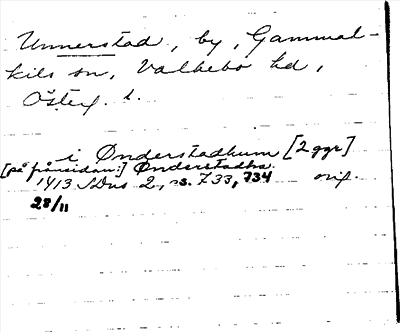 Unnerstad, by, Gammal-
kils sn, Valkebo hd,
Österg. l.
i Ønderstadhum [2 ggr]
[på frånsidan:] Ønderstadha
1413 SDns 2, s. 733, 734 orig.
28/11